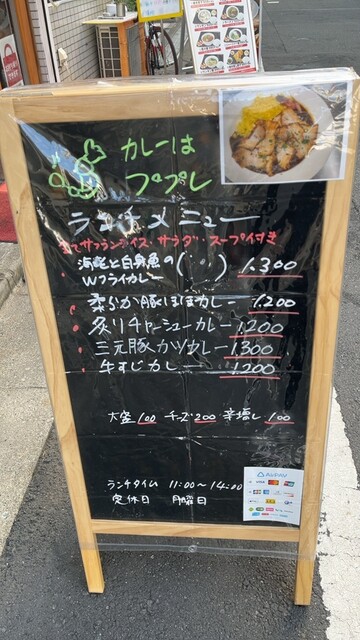 カレーは
フプレ
ランチメニュー
全てサフランライス・サラダ・スープ付き
海老と白身魚の(...)
Wフライカレー 1.300
柔らか豚ほほカレー 1.200
炙りチャーシューカレー 1200
三元豚カツカレー 1300
牛すじカレー 1200
大盛100 チーズ200 辛増し100
ランチタイム 11:00～14:00
定休日 月曜日
AirPAY